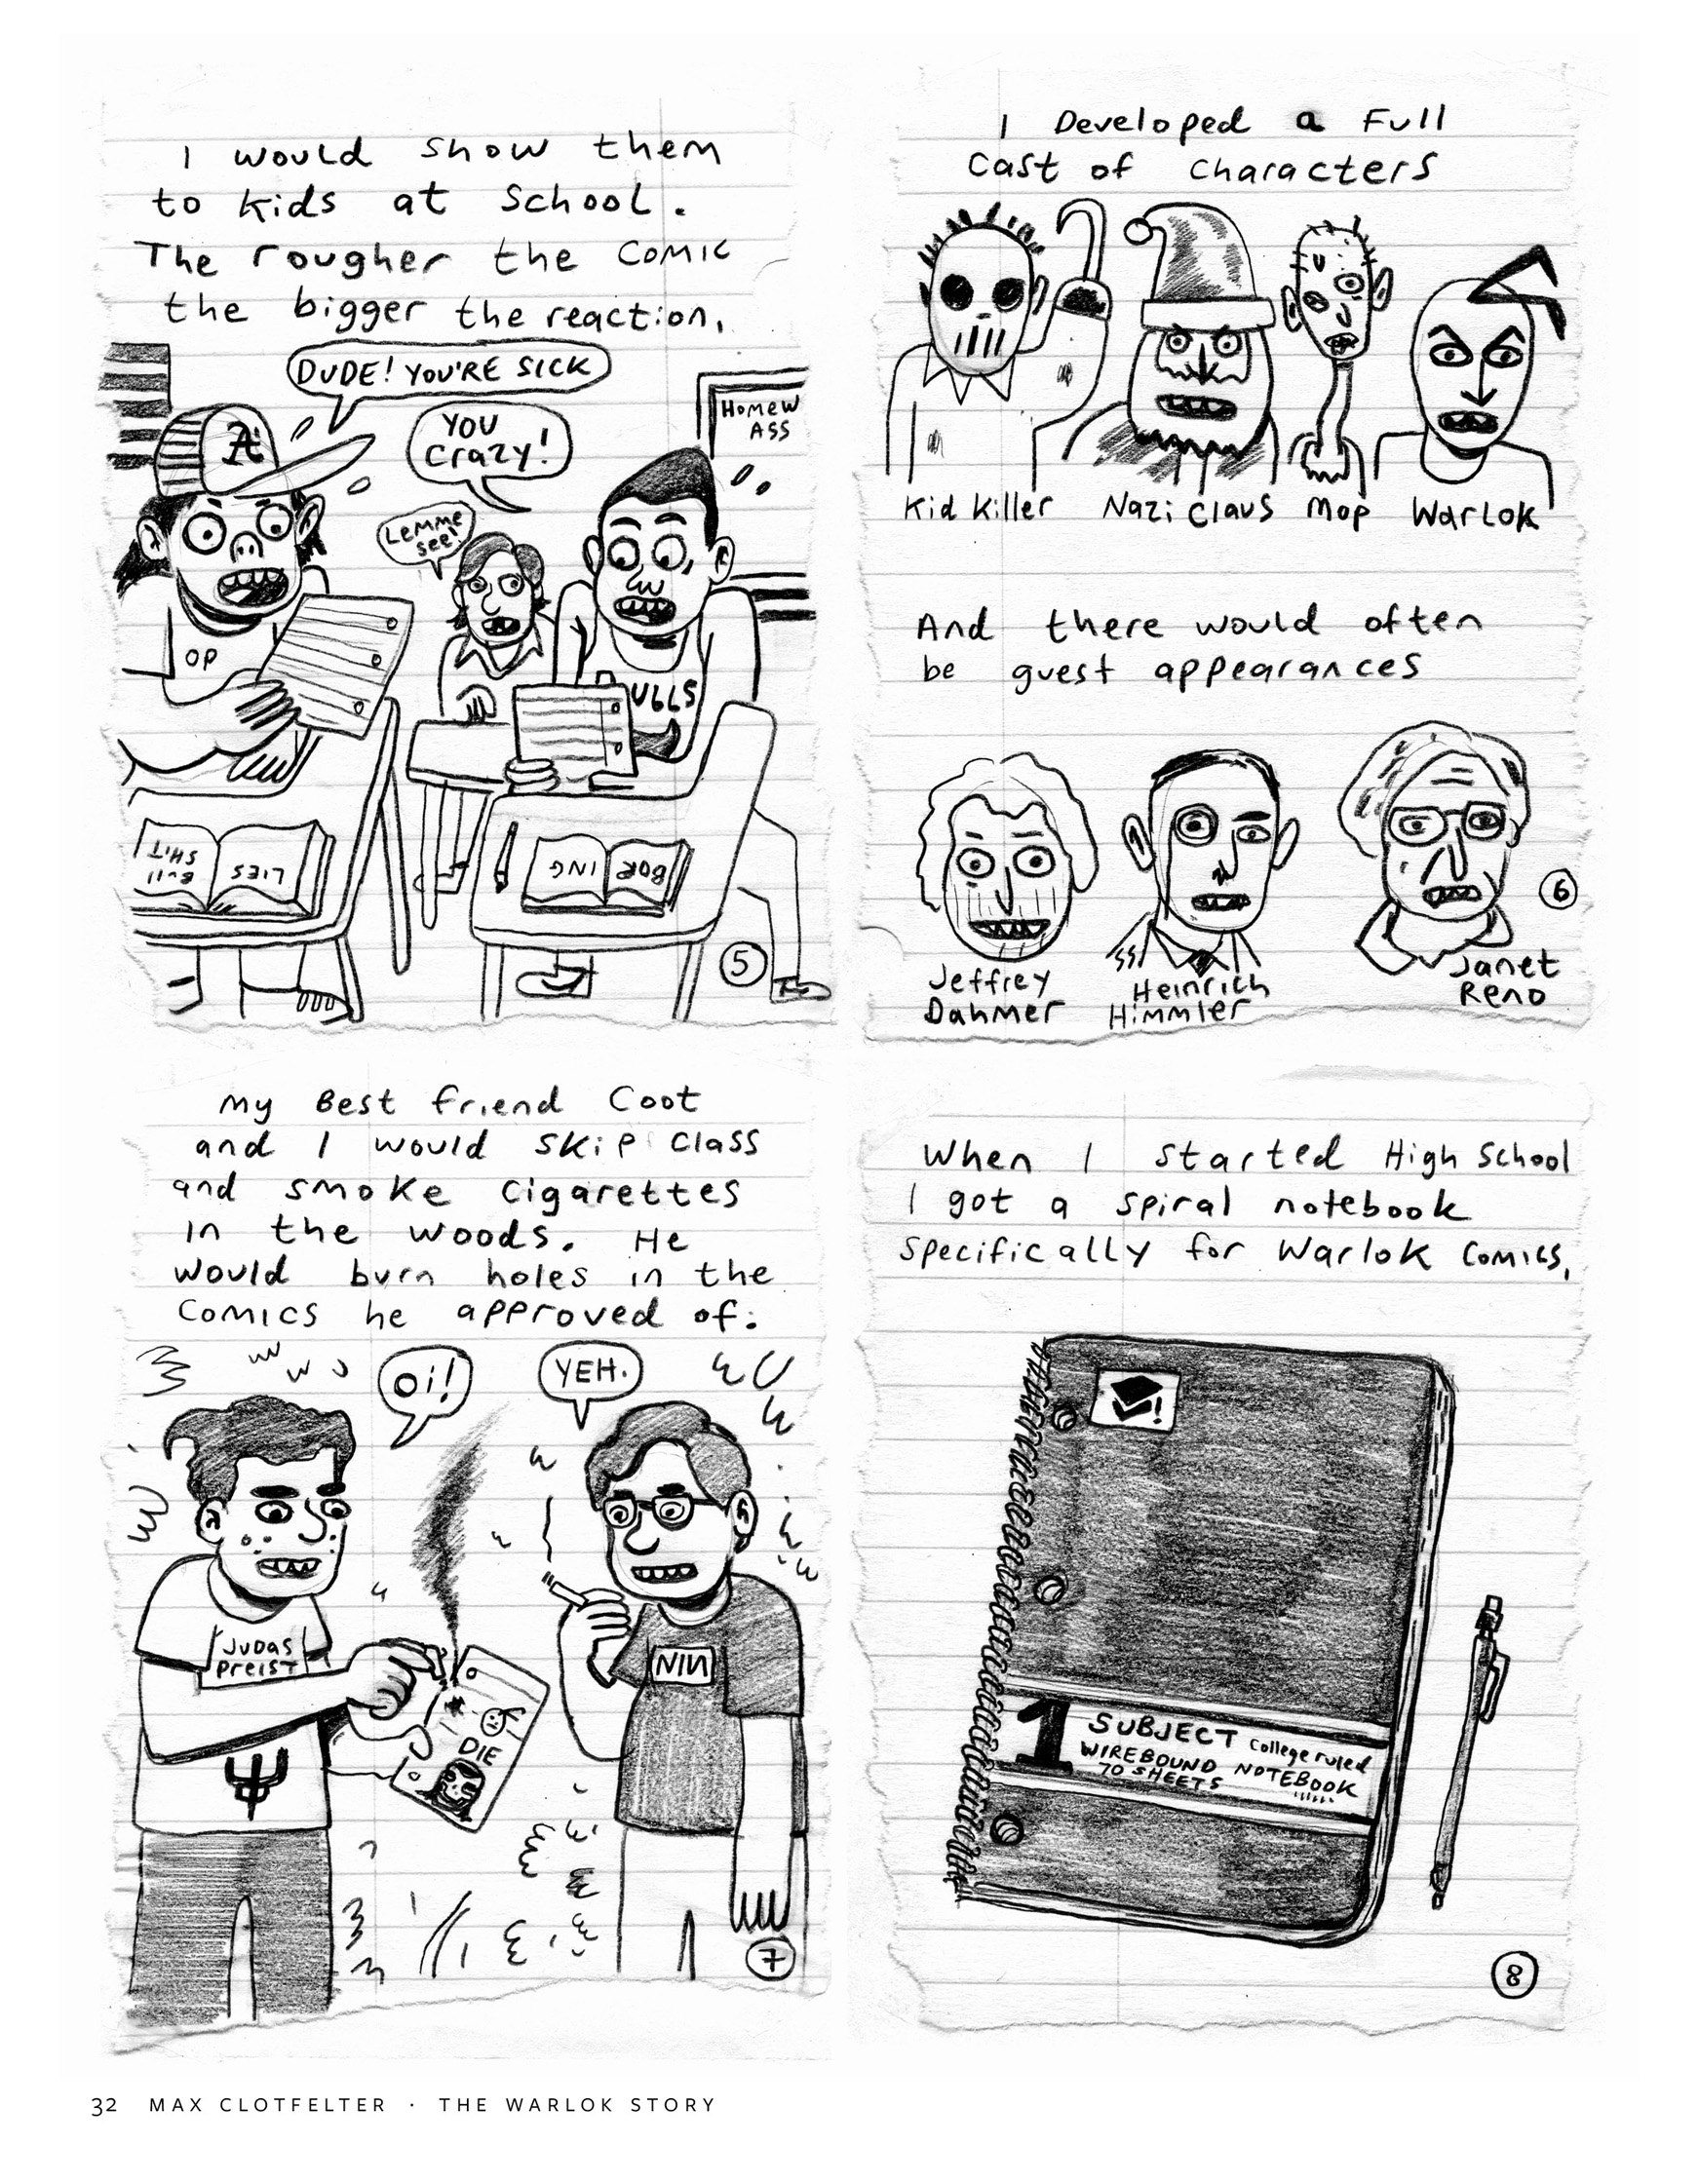 I would show them
to kids at school.
The rougher the comic
the bigger the reaction.
DUDE! YOU'RE SICK
YOU
crazy!
Lemme
see!
HOMEW
ASS
A
OP
ULLS
BULL
SHIT
LIES
BOR
ING
5
I Developed a Full
cast of characters
Kid Killer Nazi Claus Mop Warlok
And there would often
be guest appearances
SS
Jeffrey
Dahmer
Heinrich
Himmler
Janet
Reno
6
My Best friend Coot
and I would skip class
and smoke cigarettes
in the woods. He
would burn holes in the
comics he approved of.
Oi!
YEH.
Judas
Preist
NIN
DIE
7
When I started High School
I got a spiral notebook
specifically for Warlok comics.
1 SUBJECT college ruled
WIREBOUND NOTEBOOK
70 SHEETS
8
32 MAX CLOTFELTER · THE WARLOK STORY